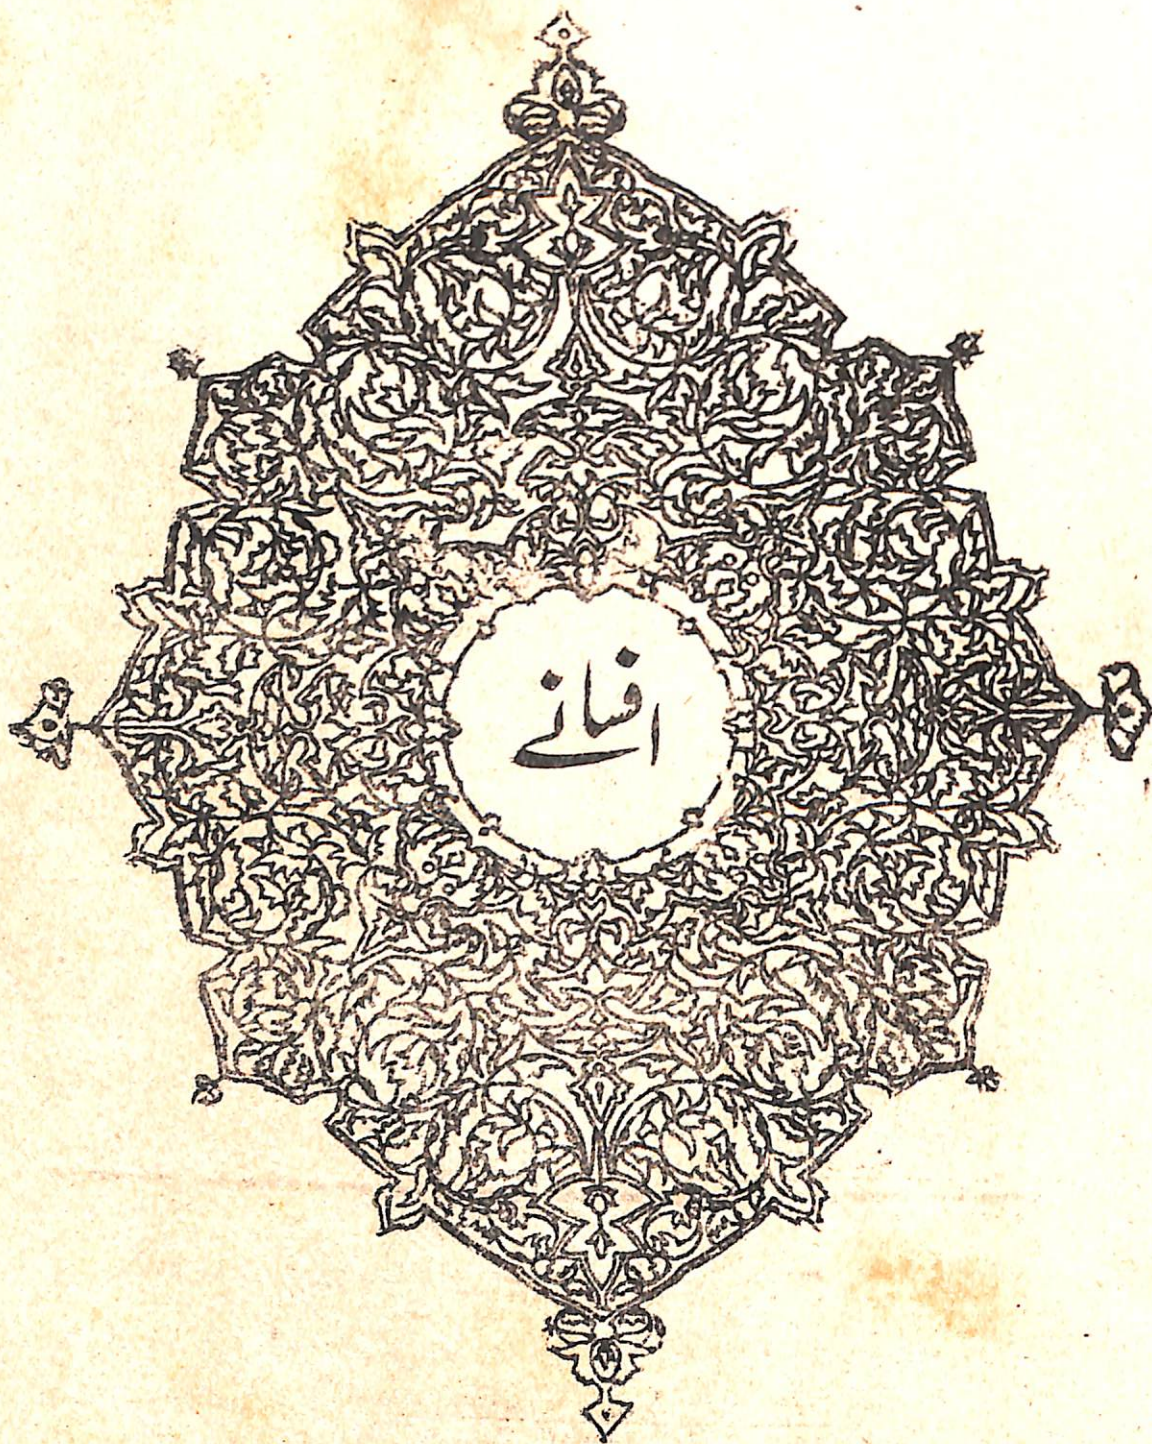 افسانے